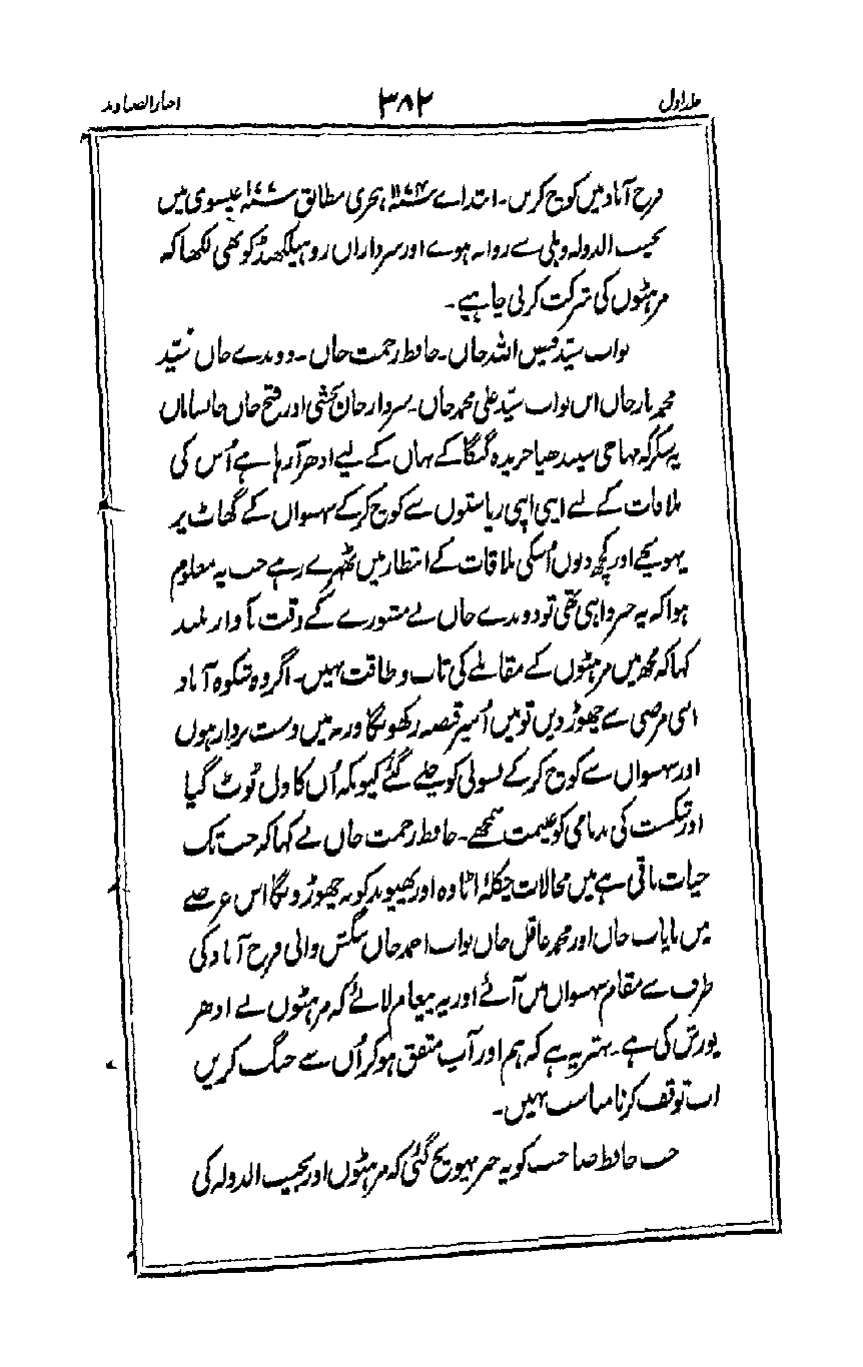 جلد اول ۳۸۲ اخبار الصنادید
فرخ آباد میں کوچ کریں۔ ابتداے ۱۱۸۴ ہجری مطابق ۱۷۷۰ عیسوی میں
نجیب الدولہ دہلی سے روانہ ہوے اور سرداران روہیلکھنڈ کو بھی لکھا کہ
مرہٹوں کی شرکت کرنی چاہیے۔
نواب سیّد فیض اللہ خاں۔ حافظ رحمت خاں۔ دوندے خاں سیّد
محمد یار خاں ابن نواب سیّد علی محمد خاں۔ سردار خان بخشی اور فتح خاں خانساماں
یہ سنکر کہ مہاجی سیندھیا جریدہ گنگا کے نہان کے لیے ادھر آ رہا ہے اُس کی
ملاقات کے لیے اپنی اپنی ریاستوں سے کوچ کرکے سہسوان کے گھاٹ پر
پہونچے اور کچھ دنوں اُسکی ملاقات کے انتظار میں ٹھہرے رہے جب یہ معلوم
ہوا کہ یہ خبر واہی تھی تو دوندے خاں نے مشورے کے وقت بآواز بلند
کہا کہ مجھ میں مرہٹوں کے مقابلے کی تاب و طاقت نہیں۔ اگر وہ شکوہ آباد
اپنی مرضی سے چھوڑ دیں تو میں اُسپر قبضہ رکھونگا ورنہ میں دست بردار ہوں
اور سہسوان سے کوچ کرکے بسولی کو چلے گئے کیونکہ اُن کا دل ٹوٹ گیا
اور شکست کی بدنامی کو غنیمت سمجھے۔ حافظ رحمت خاں نے کہا کہ جب تک
حیات باقی ہے میں محالات چکلۂ اٹاوہ اور پھپوند کو نہ چھوڑونگا اس عرصے
میں نایاب خاں اور محمد عاقل خاں نواب احمد خاں بنگش والی فرخ آباد کی
طرف سے مقام سہسوان میں آئے اور یہ پیغام لائے کہ مرہٹوں نے ادھر
یورش کی ہے۔ بہتر یہ ہے کہ ہم اور آپ متفق ہو کر اُن سے جنگ کریں
اب توقف کرنا مناسب نہیں۔
جب حافظ صاحب کو یہ خبر پہونچ گئی کہ مرہٹوں اور نجیب الدولہ کی